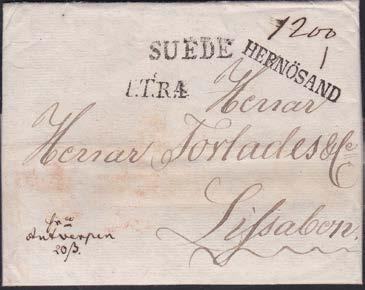 1200
1
SUEDE
HERNÖSAND
T.TRÆ
Herrar
Herrar Torlades & Co
Lissabon.
fra
Antverpen
20/3.